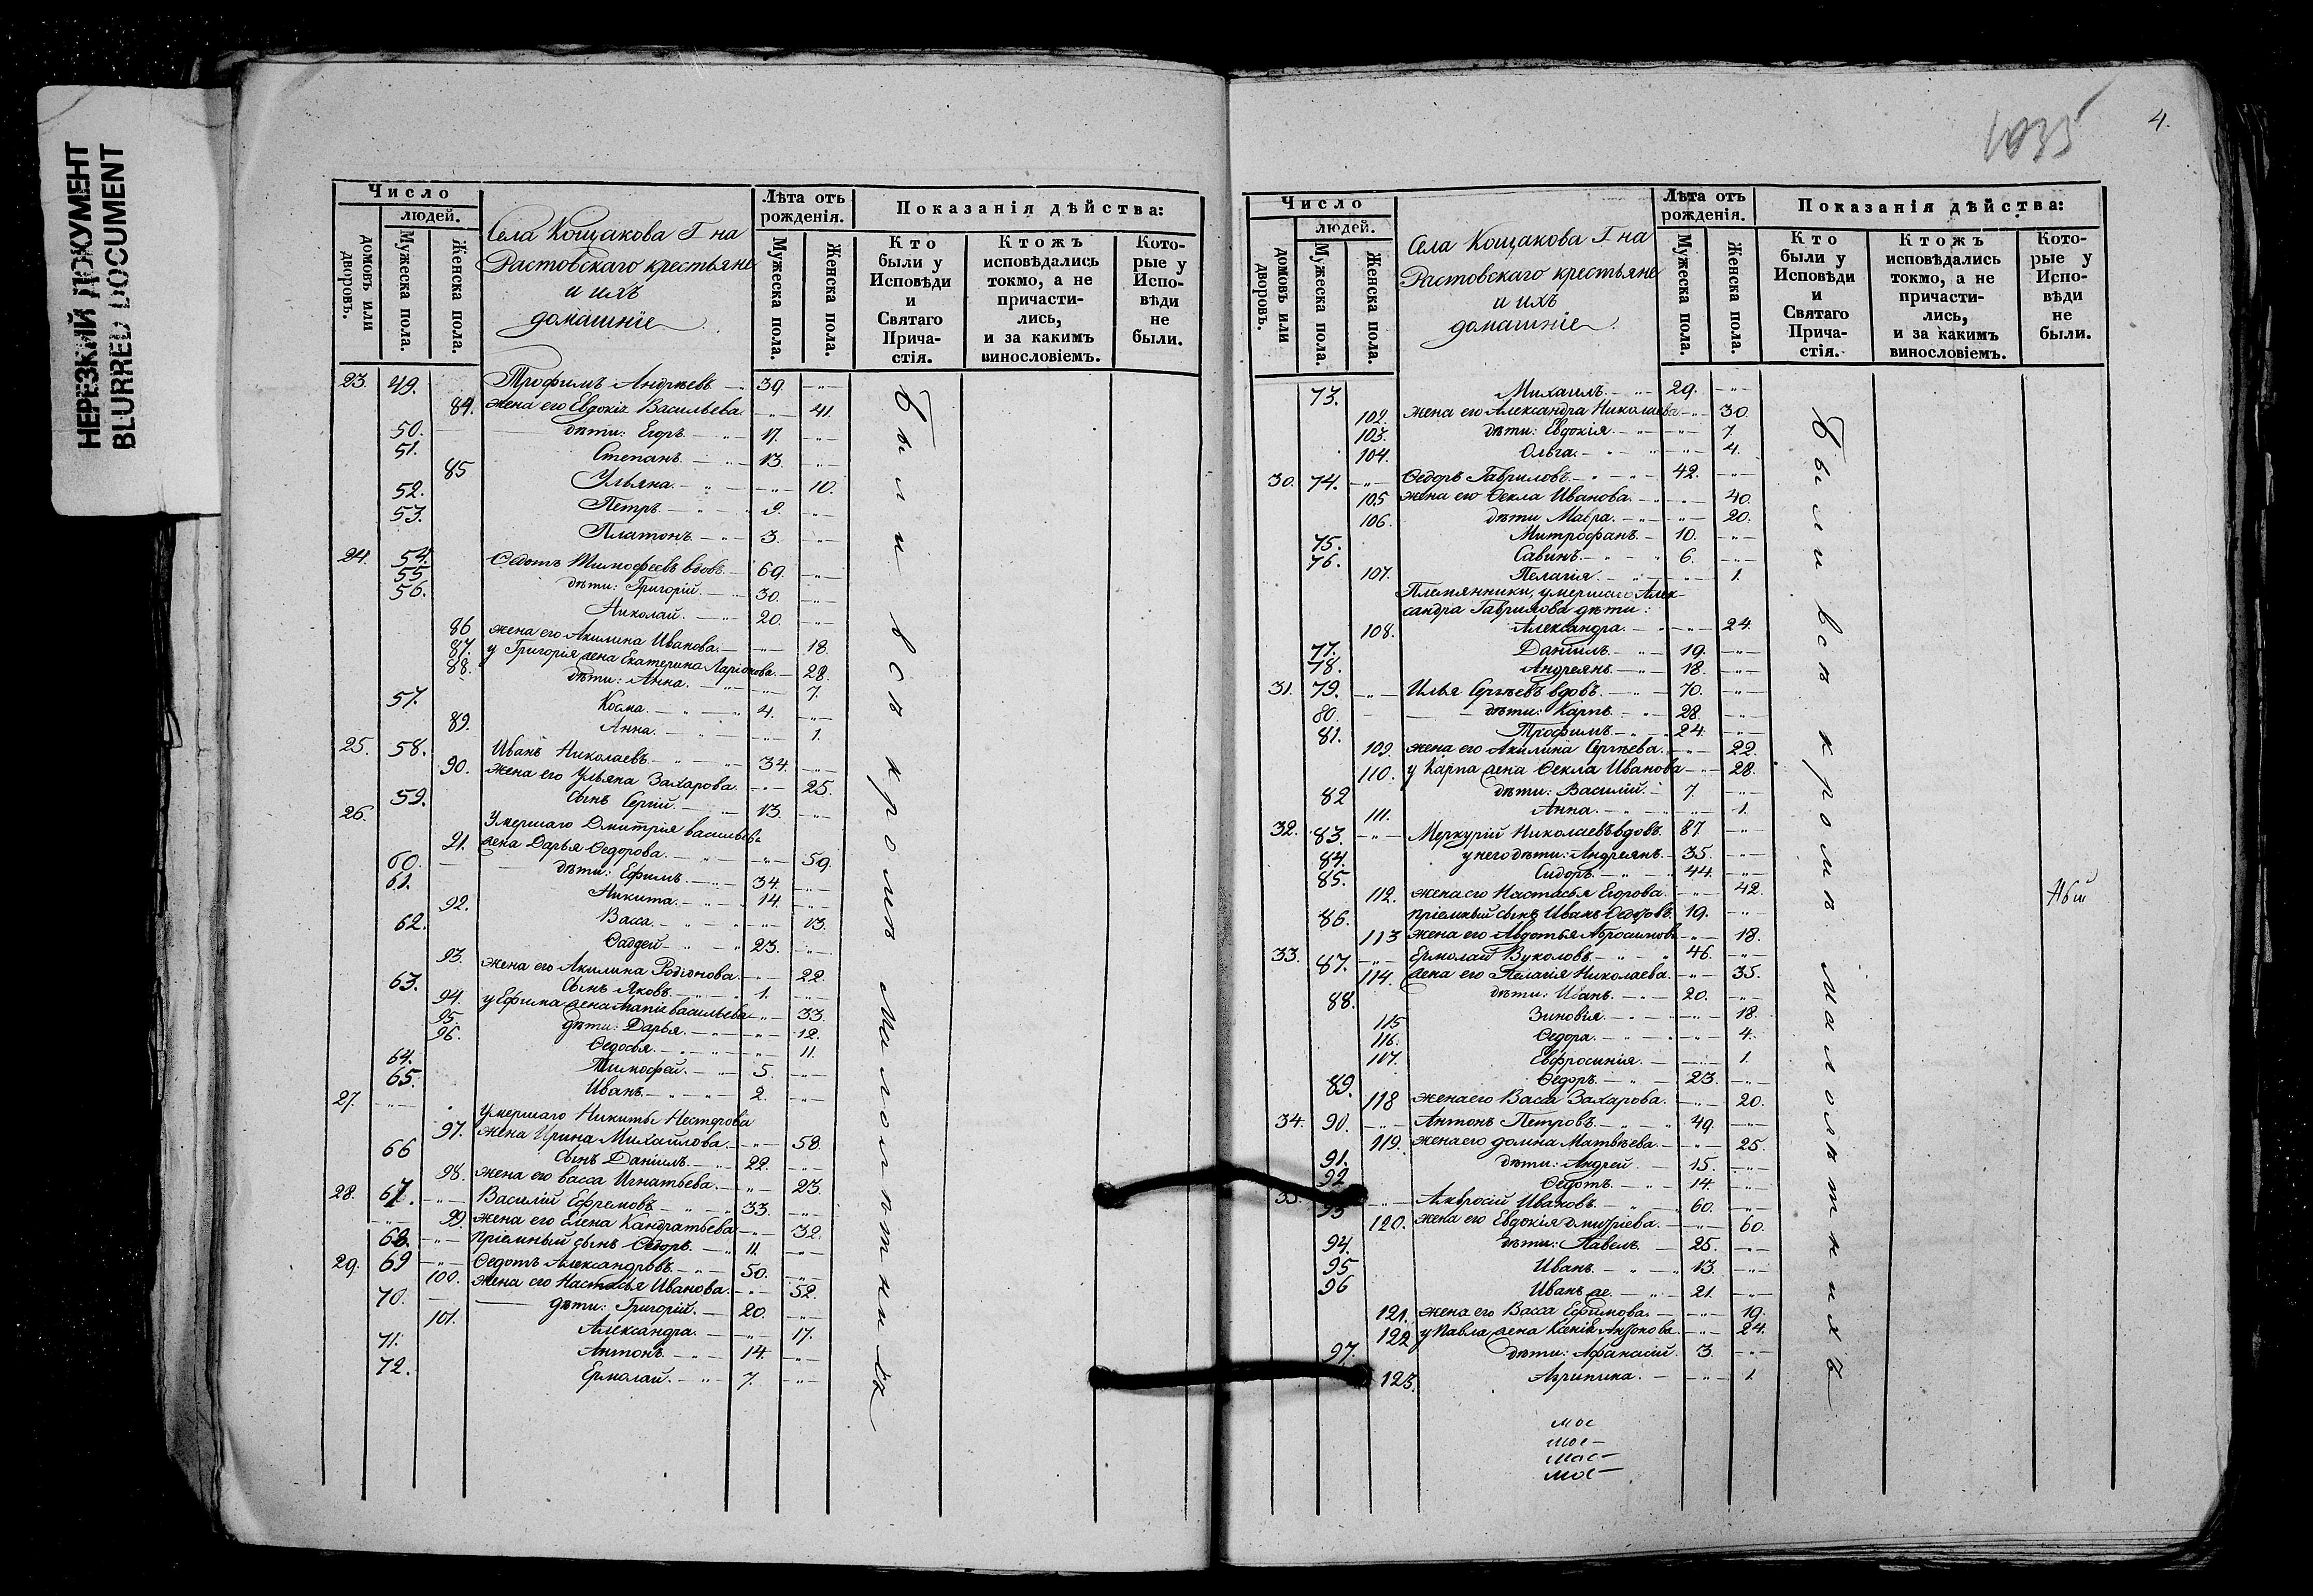 НЕРЕЗКИЙ ДОКУМЕНТ
BLURRED DOCUMENT
Число
людей.
домовъ или дворовъ.
Мужеска пола.
Женска пола.
Села Кощакова Г на
Растовскаго крестьяне
и ихъ
домашніе
Лѣта отъ рожденія.
Мужеска пола.
Женска пола.
Показанія дѣйства:
Кто были у Исповѣди и Святаго Прича- стія.
Ктожъ исповѣдались токмо, а не причасти- лись, и за какимъ винословіемъ.
Кото- рые у Испо- вѣди не были.
23. 49. Трофимъ Андреевъ 39.
84. жена его Евдокія Васильева 41.
50. дѣти: Егоръ 17.
51. Степанъ 13.
85 Ульяна 10.
52. Петръ 9.
53. Платонъ 3.
24. 54. Ѳедотъ Тимофеевъ вдовъ 69.
55 дѣти: Григорій 30.
56. Николай 20.
86 жена его Акилина Иванова 18.
87. у Григорія жена Екатерина Ларіонова 28.
88. дѣти: Анна 7.
57. Косма 4.
89. Анна 1.
25. 58. Иванъ Николаевъ 34.
90. жена его Ульяна Захарова 25.
59. сынъ Сергій 13.
26. Умершаго Дмитрія Васильева
91. жена Дарья Ѳедорова 59.
60. дѣти: Ефимъ 34.
61. Никита 14.
92. Васса 13.
62. Фаддей 23.
93. жена его Акилина Родіонова 22.
63. сынъ Яковъ 1.
94. у Ефима жена Марія Васильева 33.
95. дѣти: Дарья 12.
96. Ѳедосья 11.
64. Тимофей 5.
65. Иванъ 2.
27. Умершаго Никиты Несторова
97. жена Ирина Михайлова 58.
66 сынъ Даніилъ 22.
98. жена его Васса Игнатьева 23.
28. 67. Василій Ефремовъ 33.
99. жена его Елена Кандратьева 32.
68. пріемный сынъ Ѳедоръ 11.
29. 69 Ѳедотъ Александровъ 50.
100. жена его Настасья Иванова 52.
70. дѣти: Григорій 20.
101. Александра 17.
71. Антонъ 14.
72. Ермолай 7.
Были всѣ кромѣ малолѣтнихъ
1035
4.
Число
людей.
домовъ или дворовъ.
Мужеска пола.
Женска пола.
Села Кощакова Г на
Растовскаго крестьяне
и ихъ
домашніе
Лѣта отъ рожденія.
Мужеска пола.
Женска пола.
Показанія дѣйства:
Кто были у Исповѣди и Святаго Прича- стія.
Ктожъ исповѣдались токмо, а не причасти- лись, и за какимъ винословіемъ.
Кото- рые у Испо- вѣди не были.
73. Михаилъ 29.
102. жена его Александра Николаева 30.
103. дѣти: Евдокія 7.
104. Ольга 4.
30. 74. Ѳедоръ Гавриловъ 42.
105 жена его Ѳекла Иванова 40.
106. дѣти Мавра 20.
75. Митрофанъ 10.
76. Савинъ 6.
107. Пелагія 1.
Племянники, умершаго Алек-
сандра Гаврилова дѣти:
108. Александра 24.
77. Даніилъ 19.
78. Андреянъ 18.
31. 79. Илья Сергѣевъ вдовъ 70.
80. дѣти: Карпъ 28.
81. Трофимъ 24.
109. жена его Акилина Сергѣева 22.
110. у Карпа жена Ѳекла Иванова 28.
82 дѣти: Василій 7.
111. Анна 1.
32. 83. Меркурій Николаевъ вдовъ 87
84. у него дѣти: Андреянъ 35.
85. Сидоръ 44.
112. жена его Настасья Егорова 42.
86. пріемный сынъ Иванъ Ѳедотовъ 19.
113 жена его Авдотья Абросимова 18.
33. 87. Ермолай Вуколовъ 46.
114. жена его Пелагія Николаева 35.
88. дѣти: Иванъ 20.
115 Зиновія 18.
116. Ѳедора 4.
117. Евфросинія 1.
89. Ѳедоръ 23.
118 жена его Васса Захарова 20.
34. 90. Антонъ Петровъ 49.
119. жена его Домна Матвѣева 25.
91. дѣти: Андрей 15.
92 Ѳедотъ 14.
35. 93 Амвросій Ивановъ 60.
120. жена его Евдокія Дмитріева 60.
94. дѣти: Павелъ 25.
95 Иванъ 13.
96 Иванъ же 21.
121. жена его Васса Ефимова 19.
122 у Павла жена Ксенія Антонова 24.
97. дѣти: Афанасій 3.
123. Агрипина 1.
Были всѣ кромѣ малолѣтнихъ
мос
мос
мос
мос